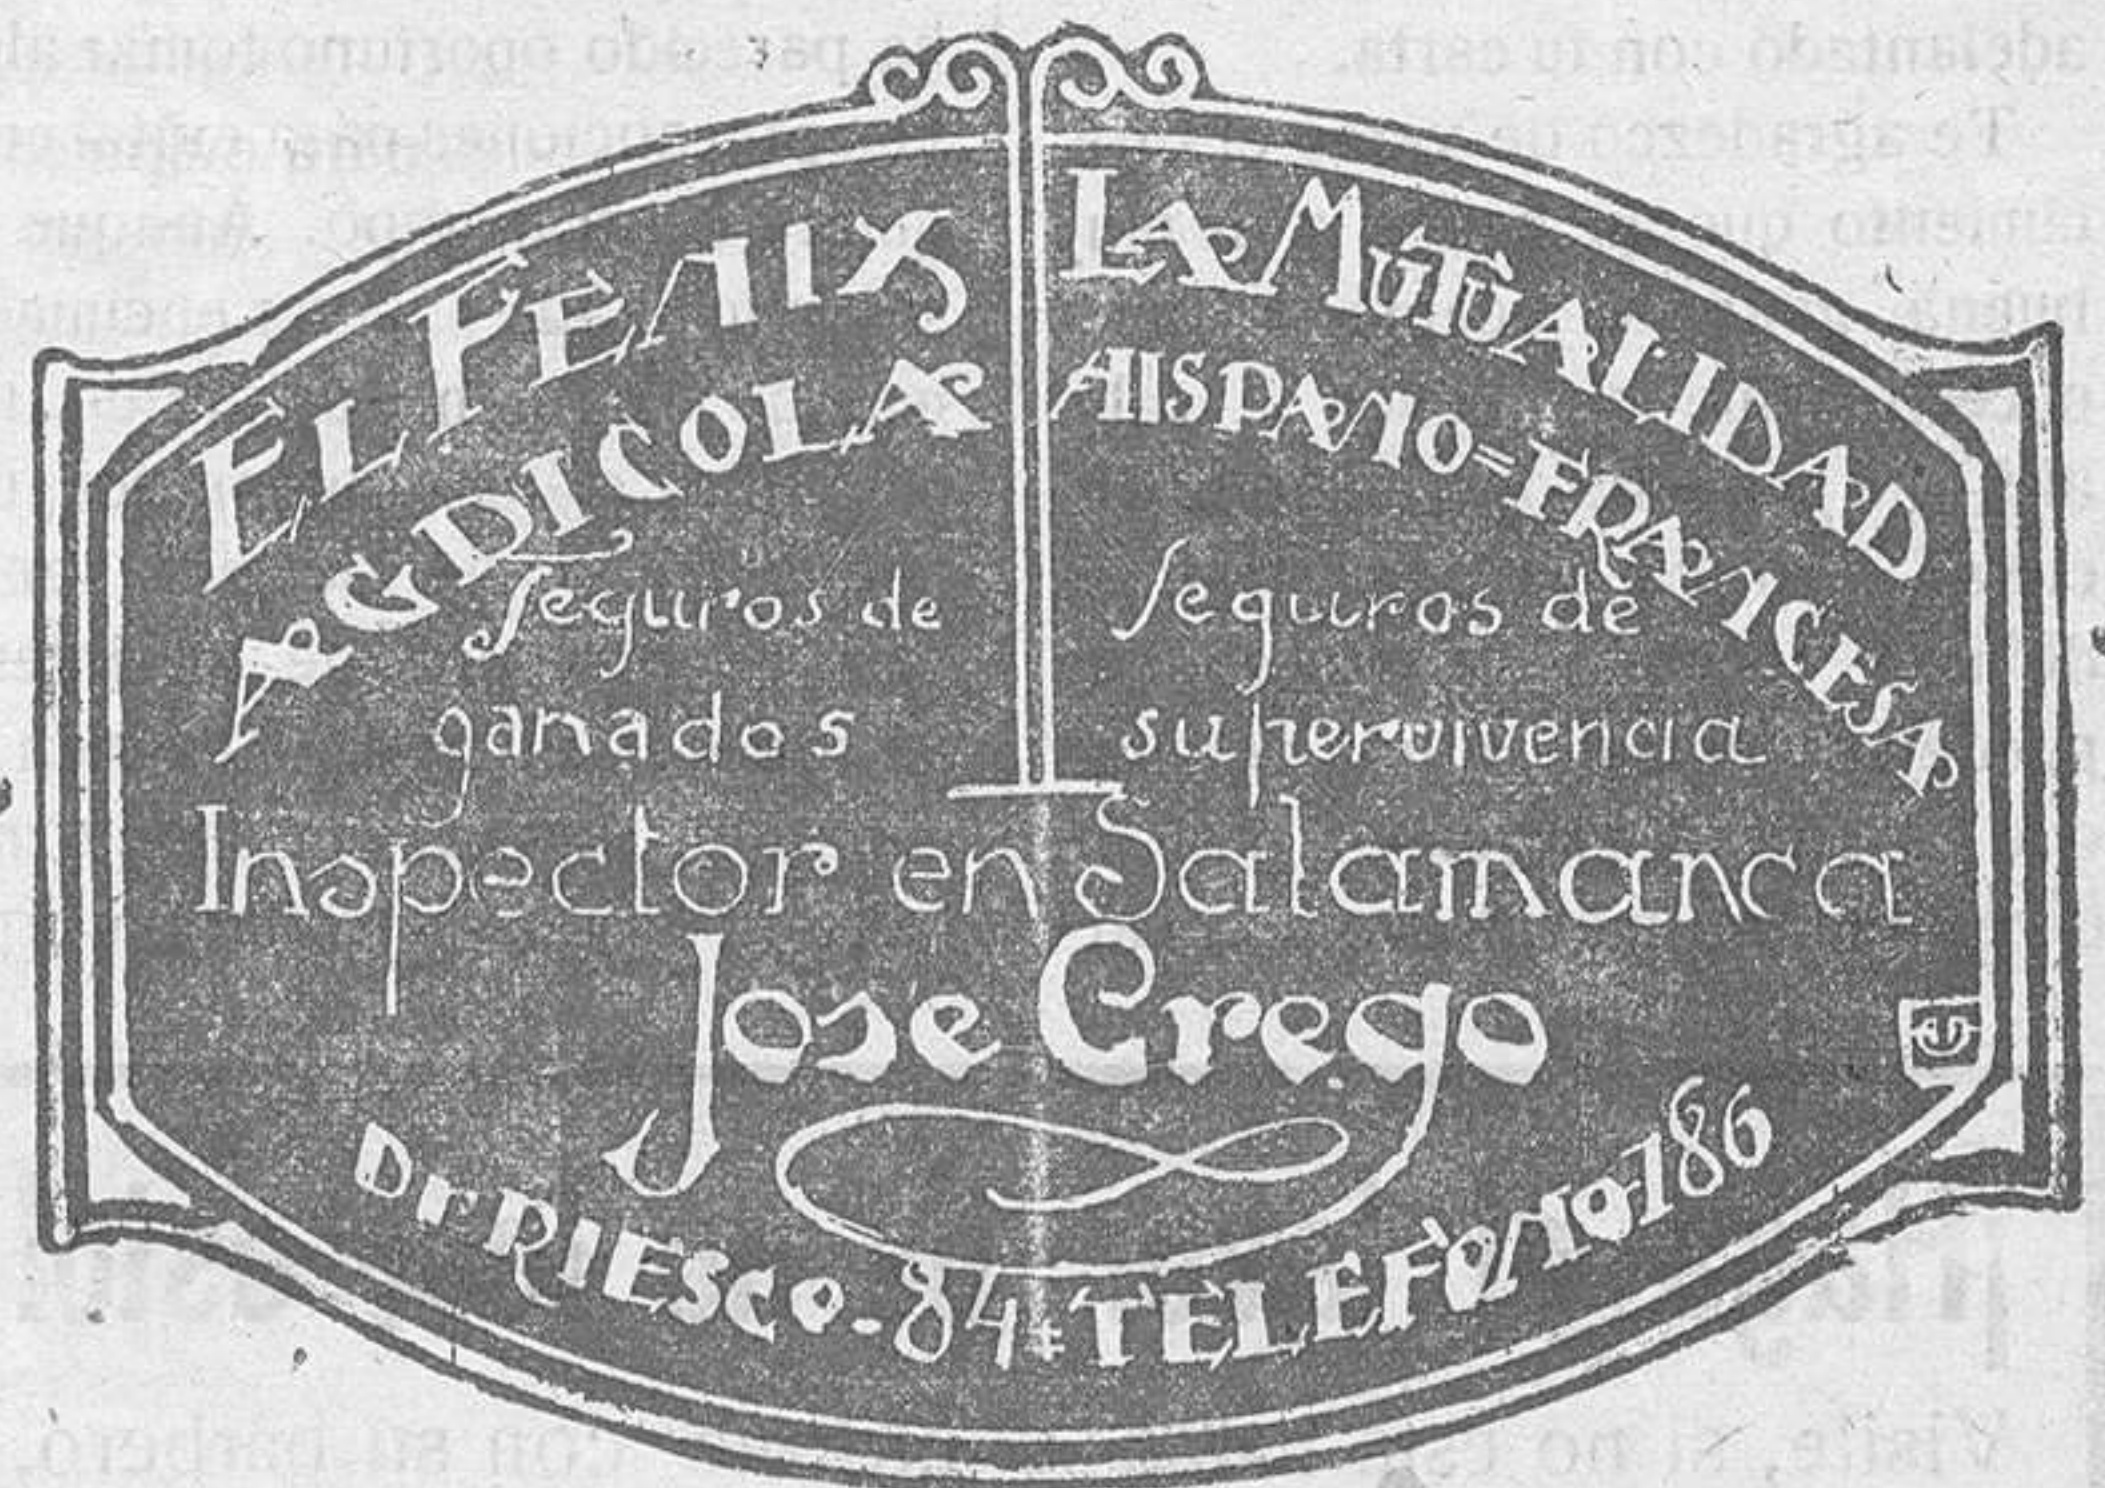 EL FENIX
AGRICOLA
Seguros de
ganados
LA MUTUALIDAD
HISPANO=FRANCESA
Seguros de
supervivencia
Inspector en Salamanca
Jose Crego
Dr RIESCO-84=TELEFONO-186
adelantado con tu carta.
Te agradezco